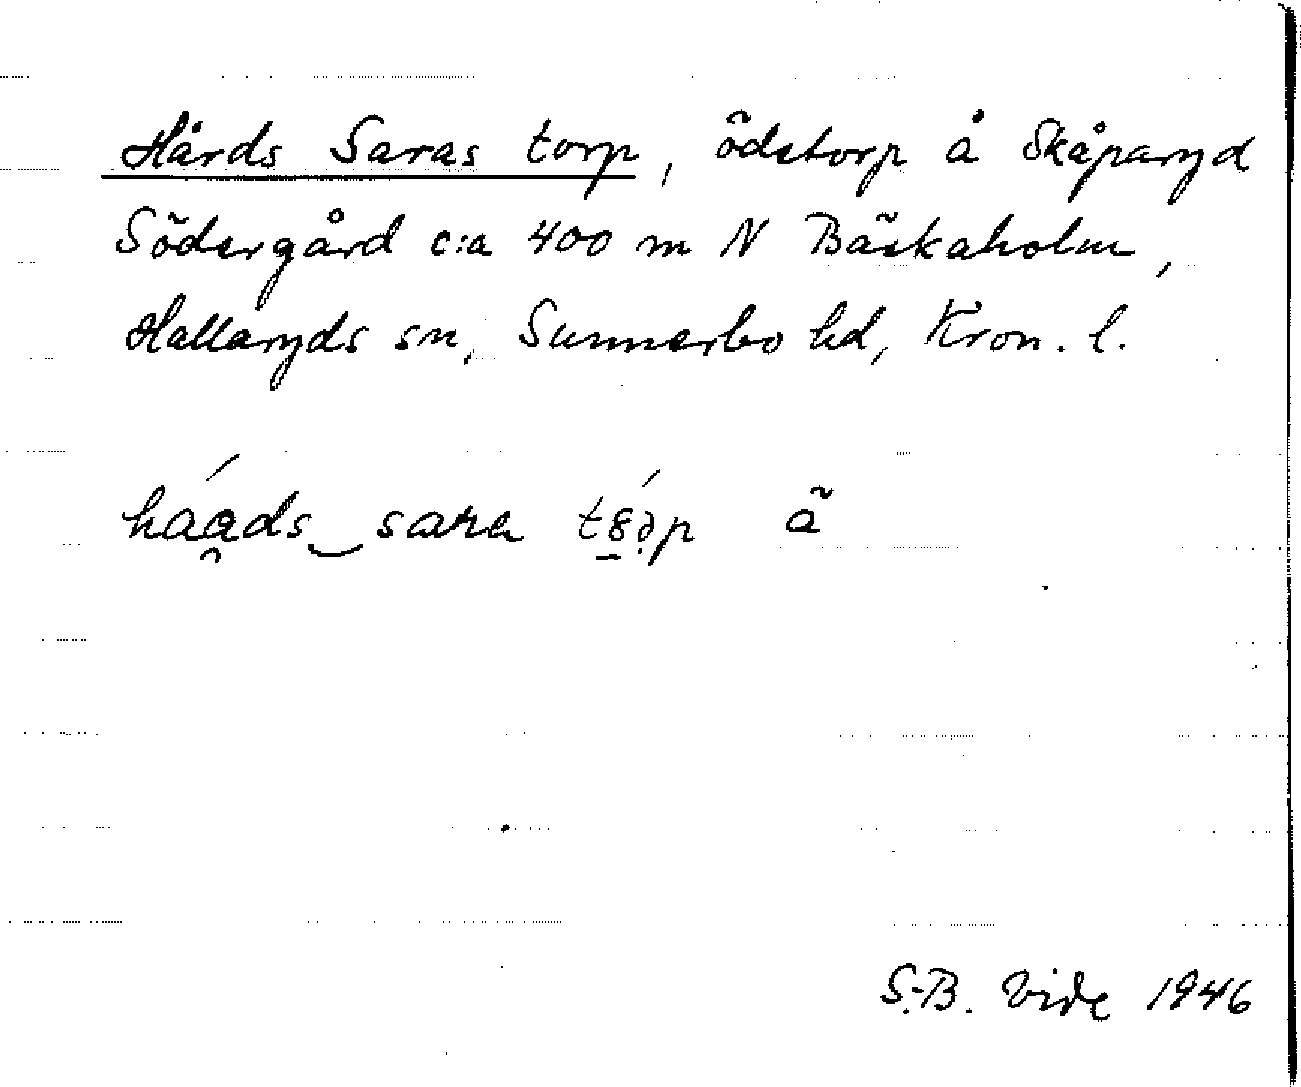 Hårds Saras torp, ödetorp å Skåparyd
Södergård c:a 400 m N Bäckaholm,
Hallaryds sn, Sunnerbo hd, Kron. l.
háa̯ds‿sara tȣ̱́ə̣p ã
S.-B. Vide 1946